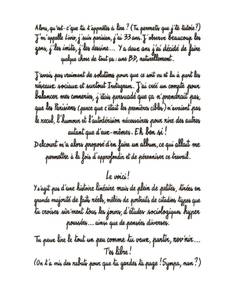 Alors, qu'est-c' que tu t'apprêtes à lire ? (Tu permets que j'te tutoie ?)
J'm'appelle Léonie, j'suis parisien, j'ai 33 ans. J'observe beaucoup les
gens, j'les imite, j'les dessine... Y a deux ans j'ai décidé de faire
quelque chose de tout ça : une BD, naturellement.
J'avais pas vraiment de solutions pour que ce soit vu et lu à part les
réseaux sociaux et surtout Instagram. J'ai créé un compte pour
balancer mes conneries, j'étais persuadé que ça n'prendrait pas,
que les Parisiens (parce que c'était les premiers ciblés) n'avaient pas
le recul, l'humour et l'autodérision nécessaires pour rire des autres
autant que d'eux-mêmes. Eh bon si !
Delcourt m'a alors proposé d'en faire un album, ce qui allait me
permettre à la fois d'approfondir et de pérenniser ce travail.
Le voici !
Y s'agit pas d'une histoire linéaire mais de plein de petites, tirées en
grande majorité de faits réels, mêlées de portraits de citadins types que
tu croises sûr'ment tous les jours, d'études sociologiques hyper
poussées... ainsi que de pensées diverses.
Tu peux lire le tout un peu comme tu veux, partir, rev'nir...
T'es libre !
(On t'a mis des rabats pour que tu gardes ta page ! Sympa, non ?)